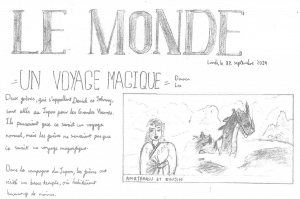 LE MONDE
Lundi, le 22 septembre 2024
= UN VOYAGE MAGIQUE =
Deux frères, qui s'appellent Daniel et Johnny,
sont allés au Japon pour les Grandes Vacances.
Ils pensaient que ce serait un voyage
normal, mais les frères ne savaient pas que
ce serait un voyage magnifique.
Dans la campagne du Japon, les frères ont
visité un beau temple, où habitaient
beaucoup de moines.
AMATERASU ET RYUJIN